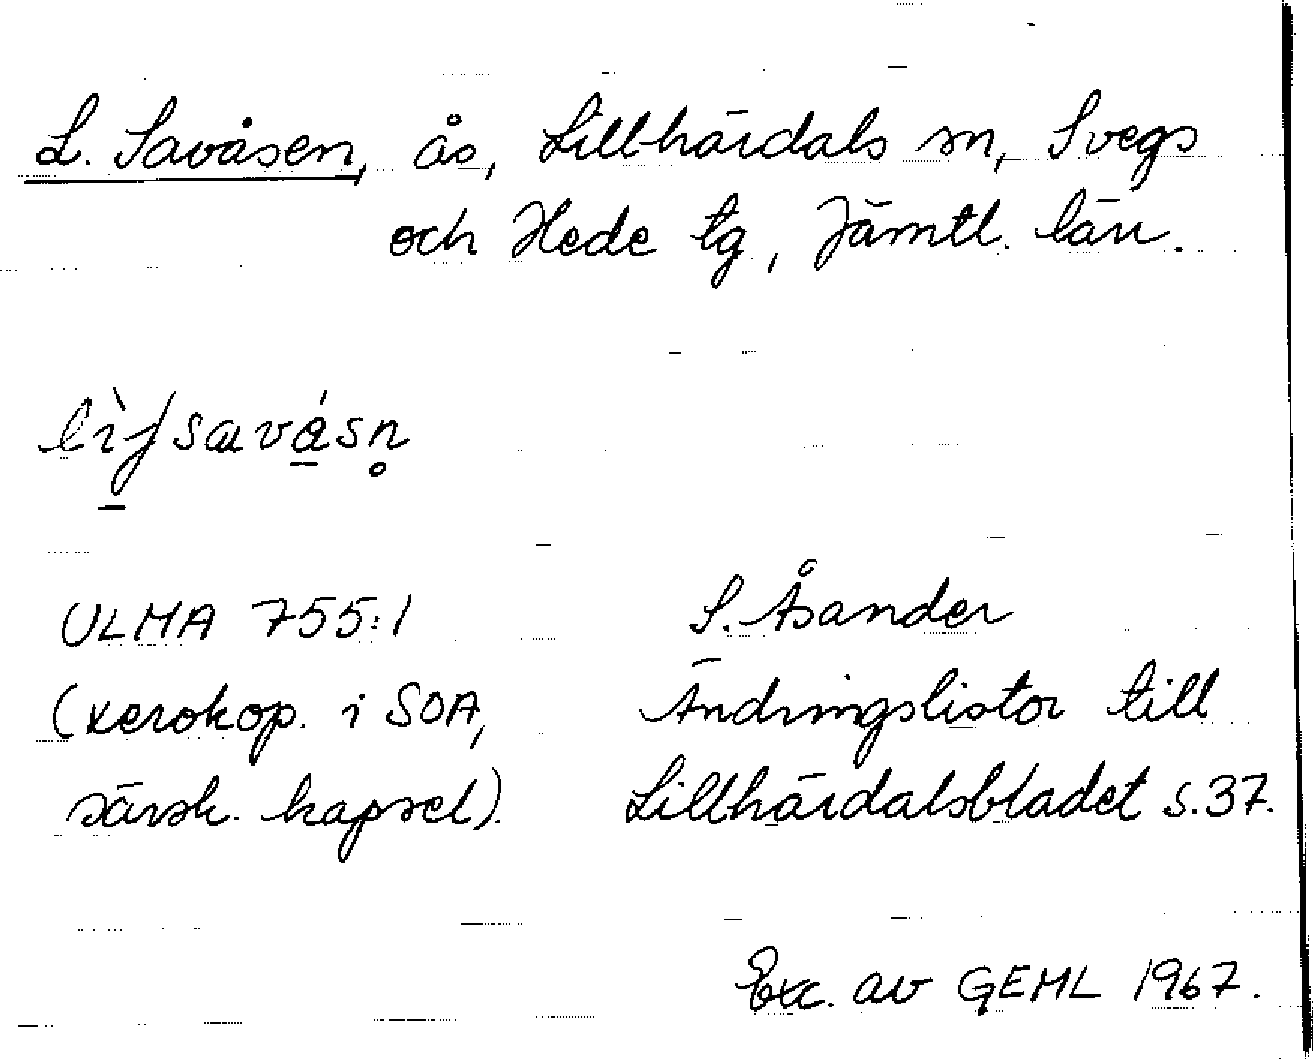 L. Savåsen, ås, Lillhärdals sn, Svegs
och Hede tg, Jämtl. län.
ULMA 755:1
(xerokop. i SOA,
särsk. kapsel).
S. Åsander
Ändringslistor till
Lillhärdalsbladet s.37.
Exc. av GEML 1967.